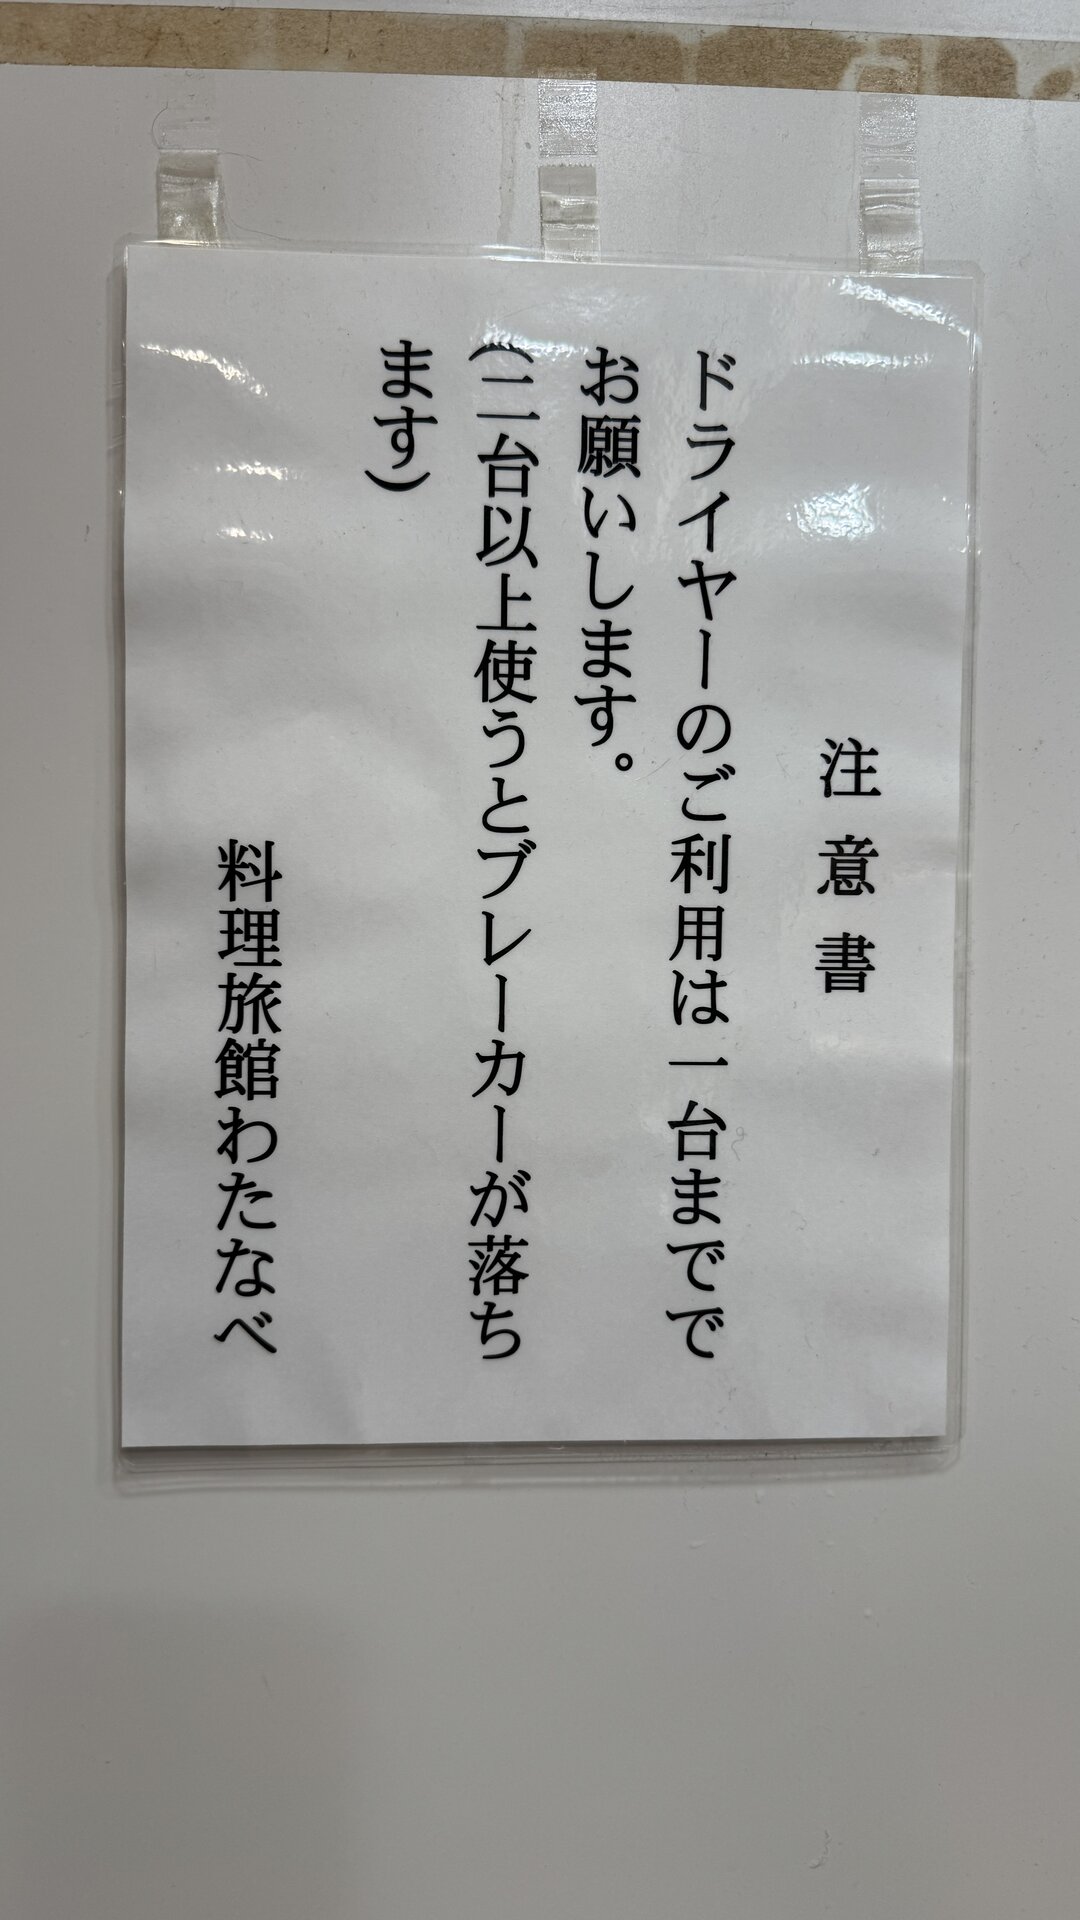 注意書
ドライヤーのご利用は一台までで
お願いします。
(二台以上使うとブレーカーが落ち
ます)
料理旅館わたなべ